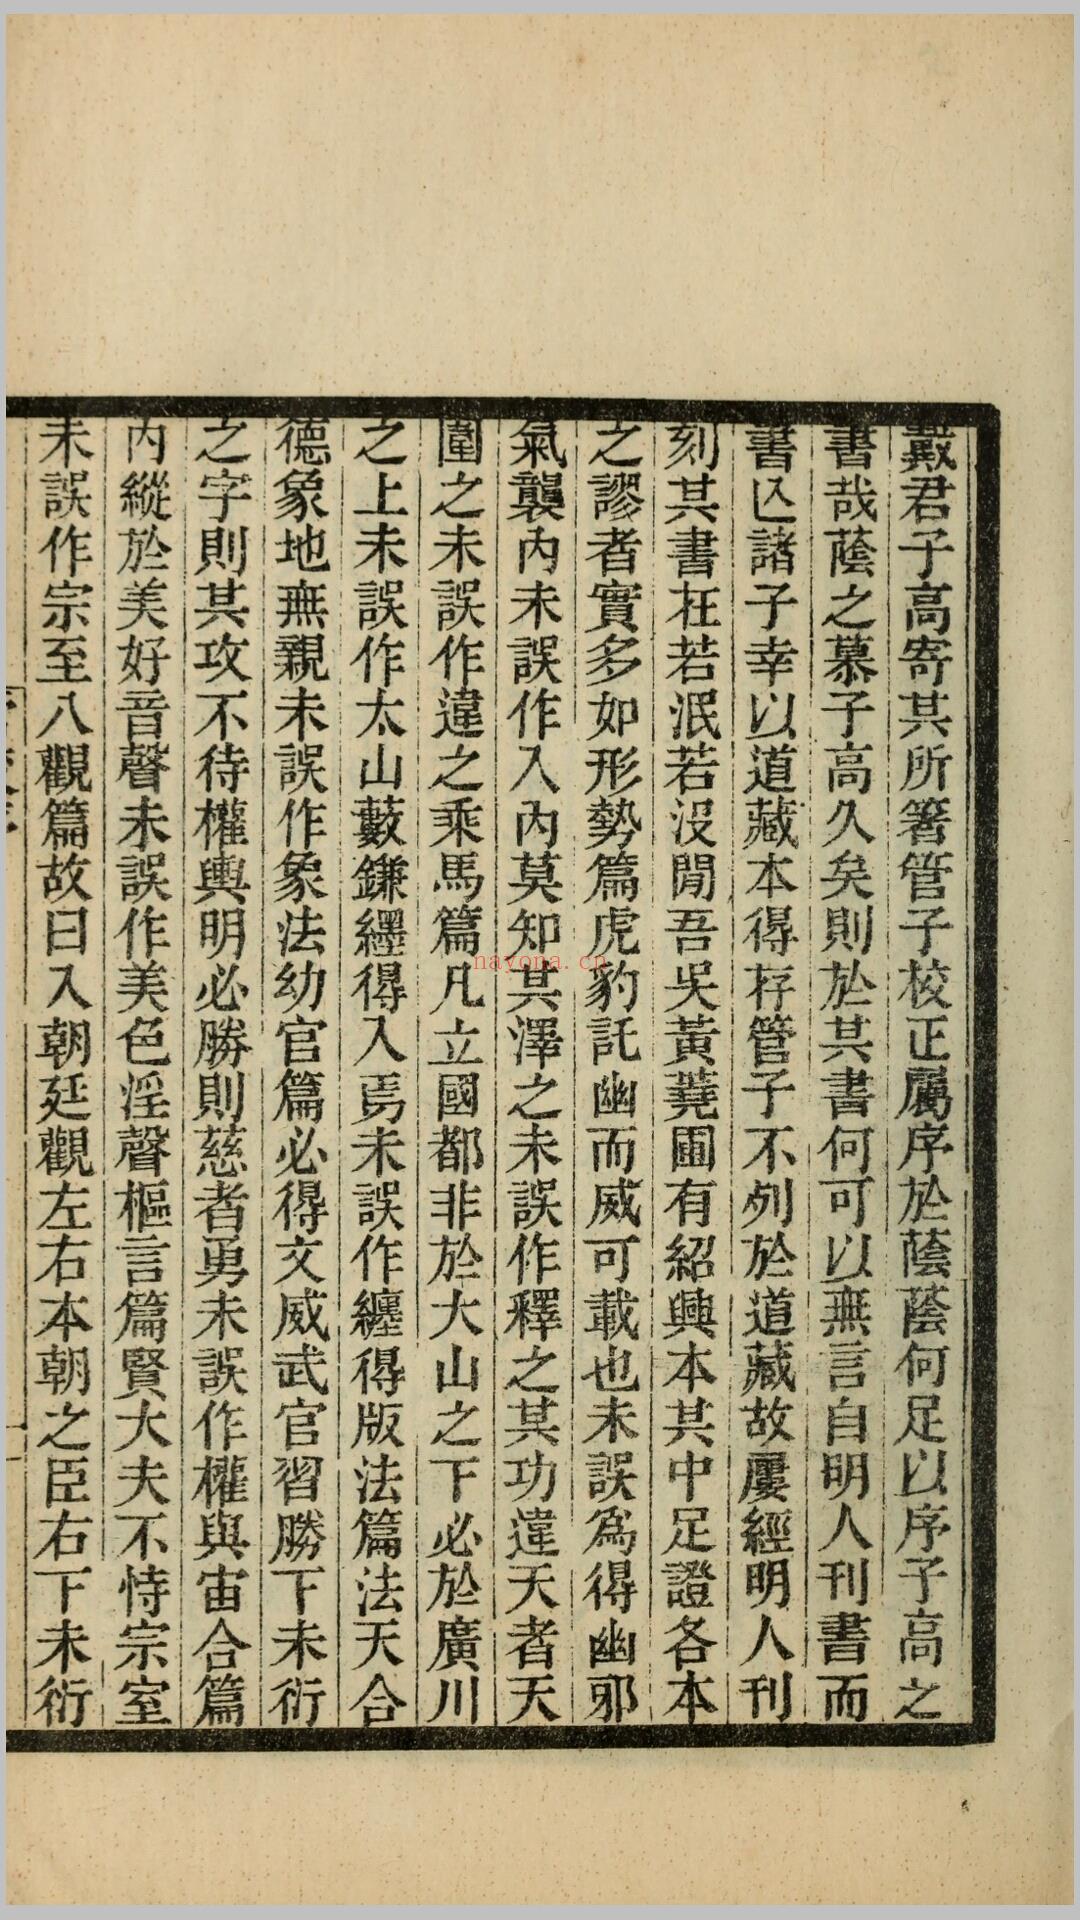 戴君子高寄其所箸管子校正屬序於蔭蔭何足以序子高之
書哉蔭之慕子高久矣則於其書何可以無言自明人刊書而
書亾諸子幸以道藏本得存管子不列於道藏故屢經明人刊
刻其書在若泯若沒閒吾吳黃蕘圃有紹興本其中足證各本
之謬者實多如形勢篇虎豹託幽而威可載也未誤爲得幽邪
氣襲內未誤作入內莫知其澤之未誤作釋之其功違天者天
圍之未誤作違之乘馬篇凡立國都非於大山之下必於廣川
之上未誤作太山藪鎌纆得入焉未誤作纏得版法篇法天合
德象地無親未誤作象法幼官篇必得文威武官習勝下未衍
之字則其攻不待權輿明必勝則慈者勇未誤作權與宙合篇
內縱於美好音聲未誤作美色淫聲樞言篇賢大夫不恃宗室
未誤作宗至八觀篇故曰入朝廷觀左右本朝之臣右下未衍
nayona.cn